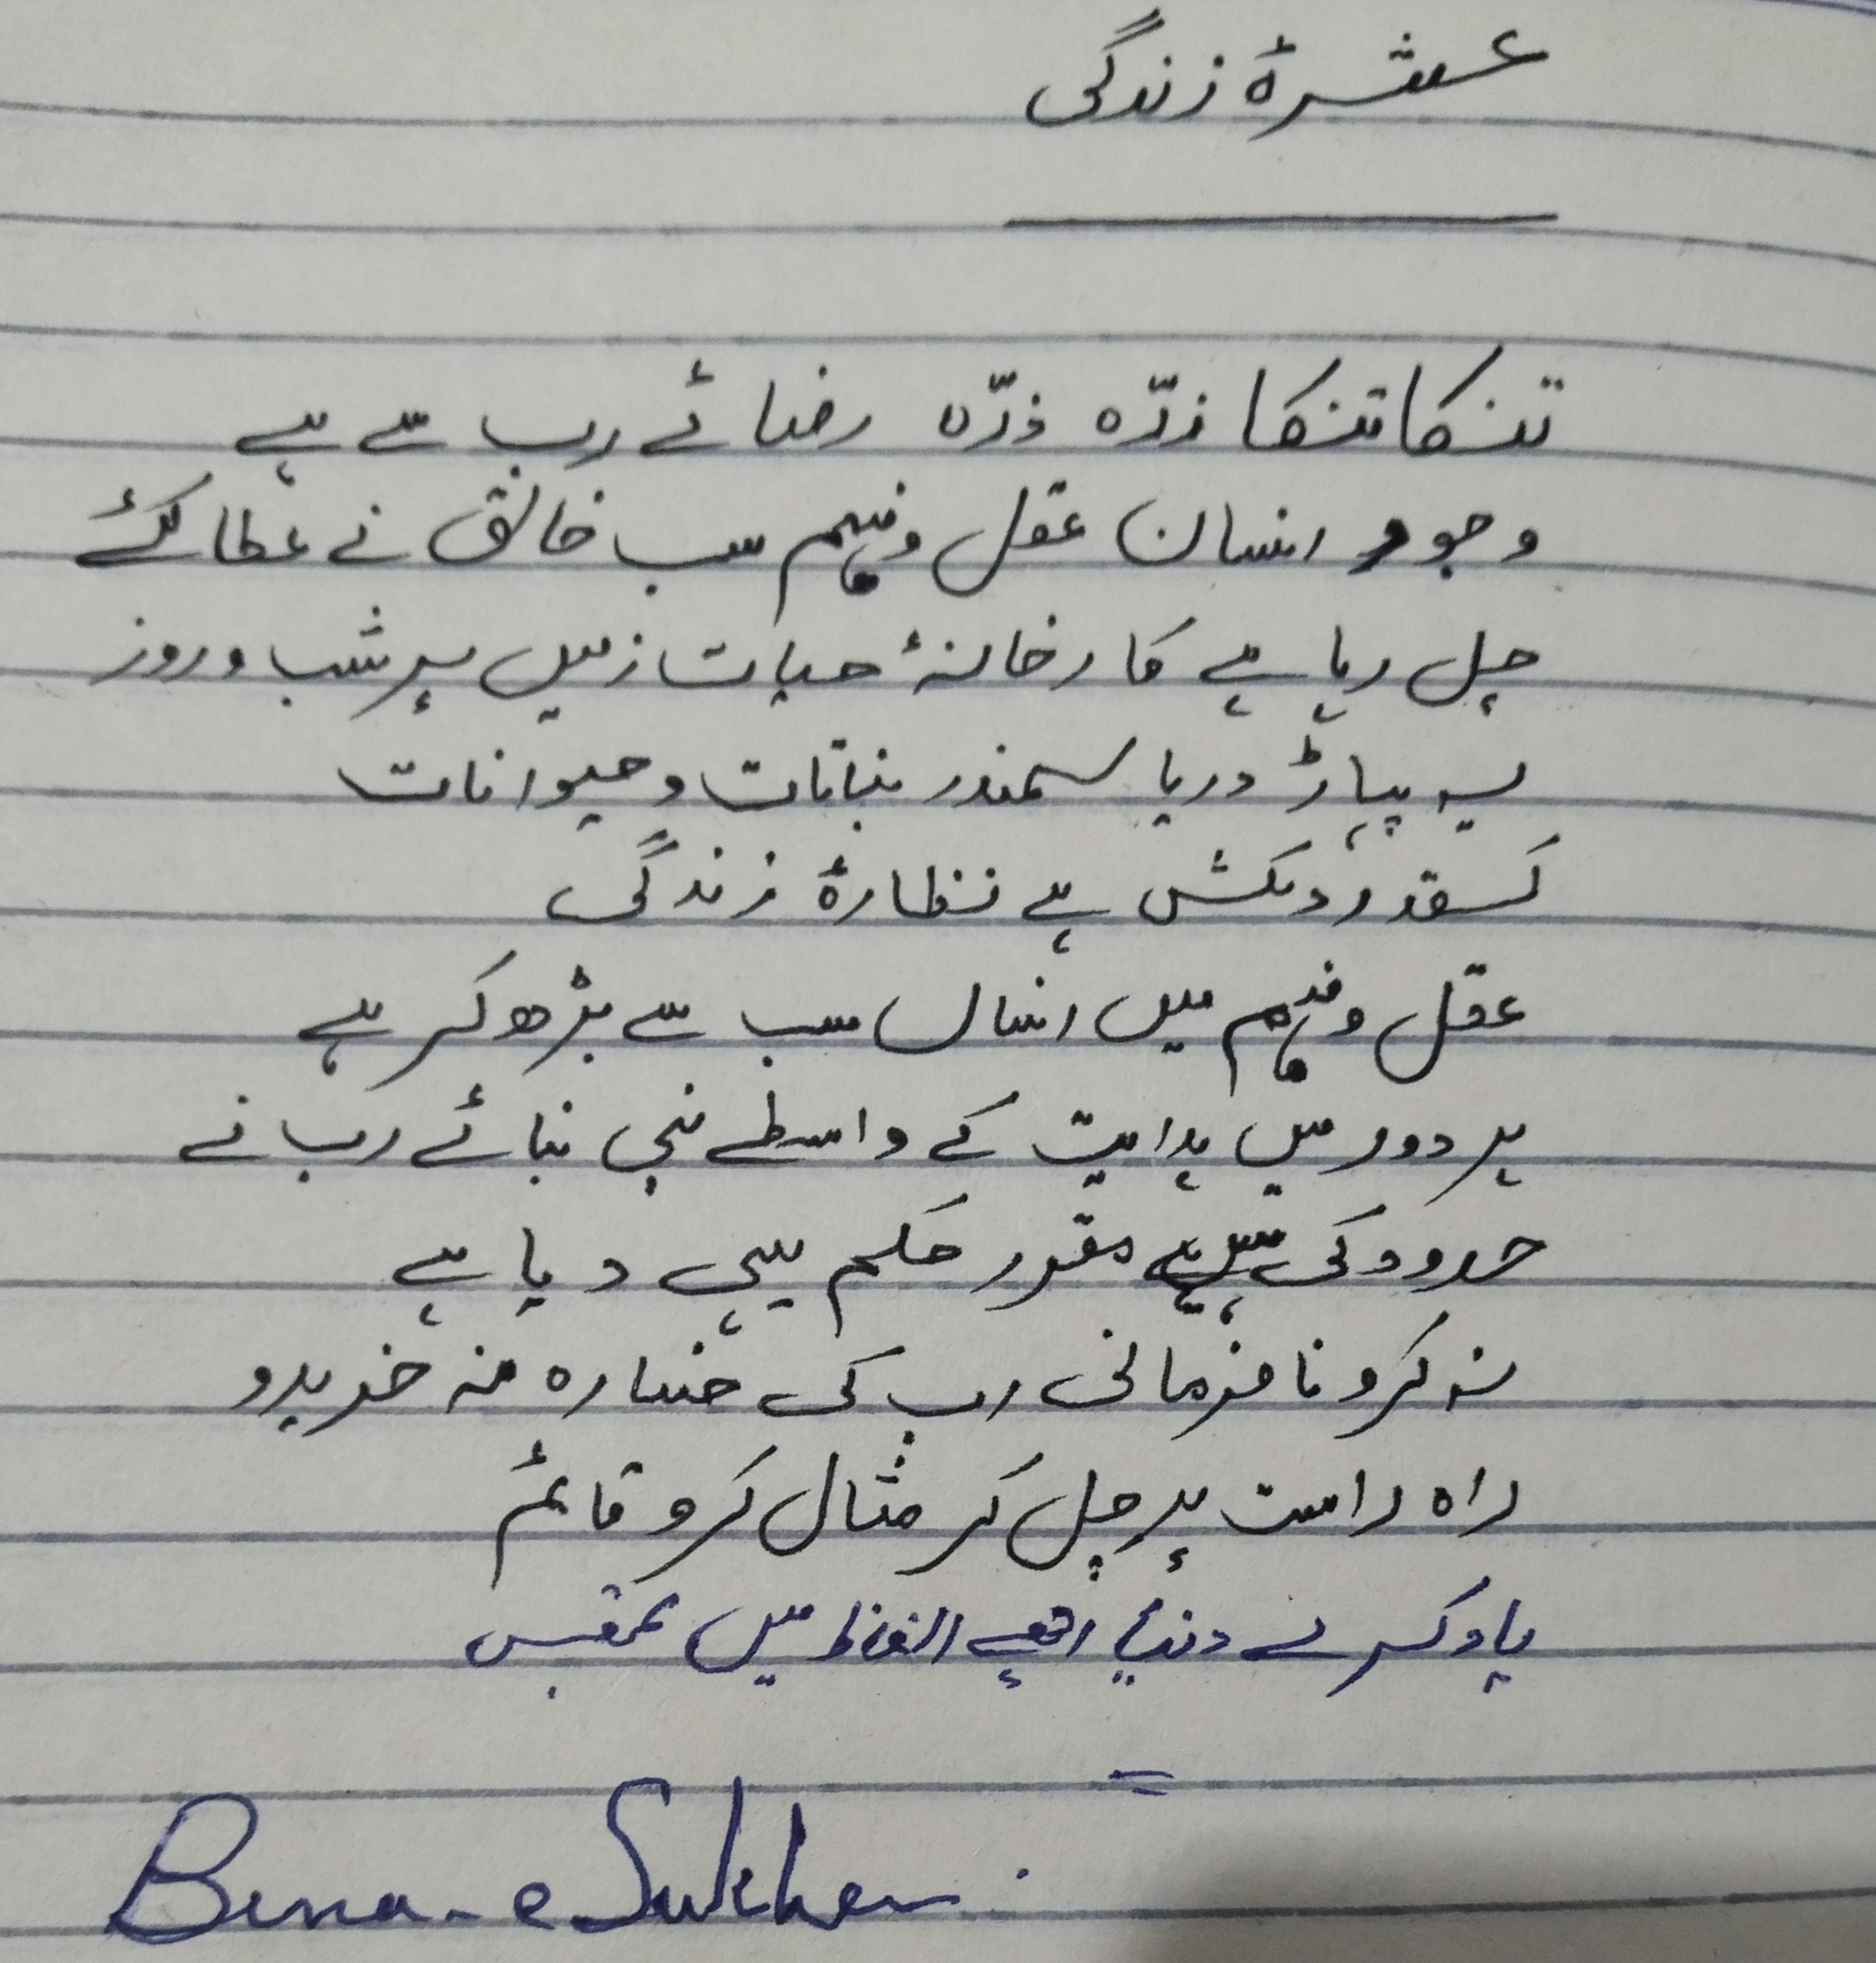 عشرۂ زندگی
تنکا تنکا ذرّہ ذرّہ رضائے رب سے ہے
وجود انسان عقل و فہم سب خالق نے عطا کئے
چل رہا ہے کارخانۂ حیات زمیں پر شب و روز
یہ پہاڑ دریا سمندر نباتات و حیوانات
کسقدر دلکش ہے نظارۂ زندگی
عقل و فہم میں انساں سب سے بڑھ کر ہے
ہر دور میں ہدایت کے واسطے نبی بنائے رب نے
حدود کی ہے مقرر حکم یہی دیا ہے
نہ کرو نافرمانی رب کی خسارہ نہ خریدو
راہ راست پر چل کر مثال کرو قائم
یاد کرے دنیا اچھے الفاظ میں تمھیں
Bena-e Sukhan.